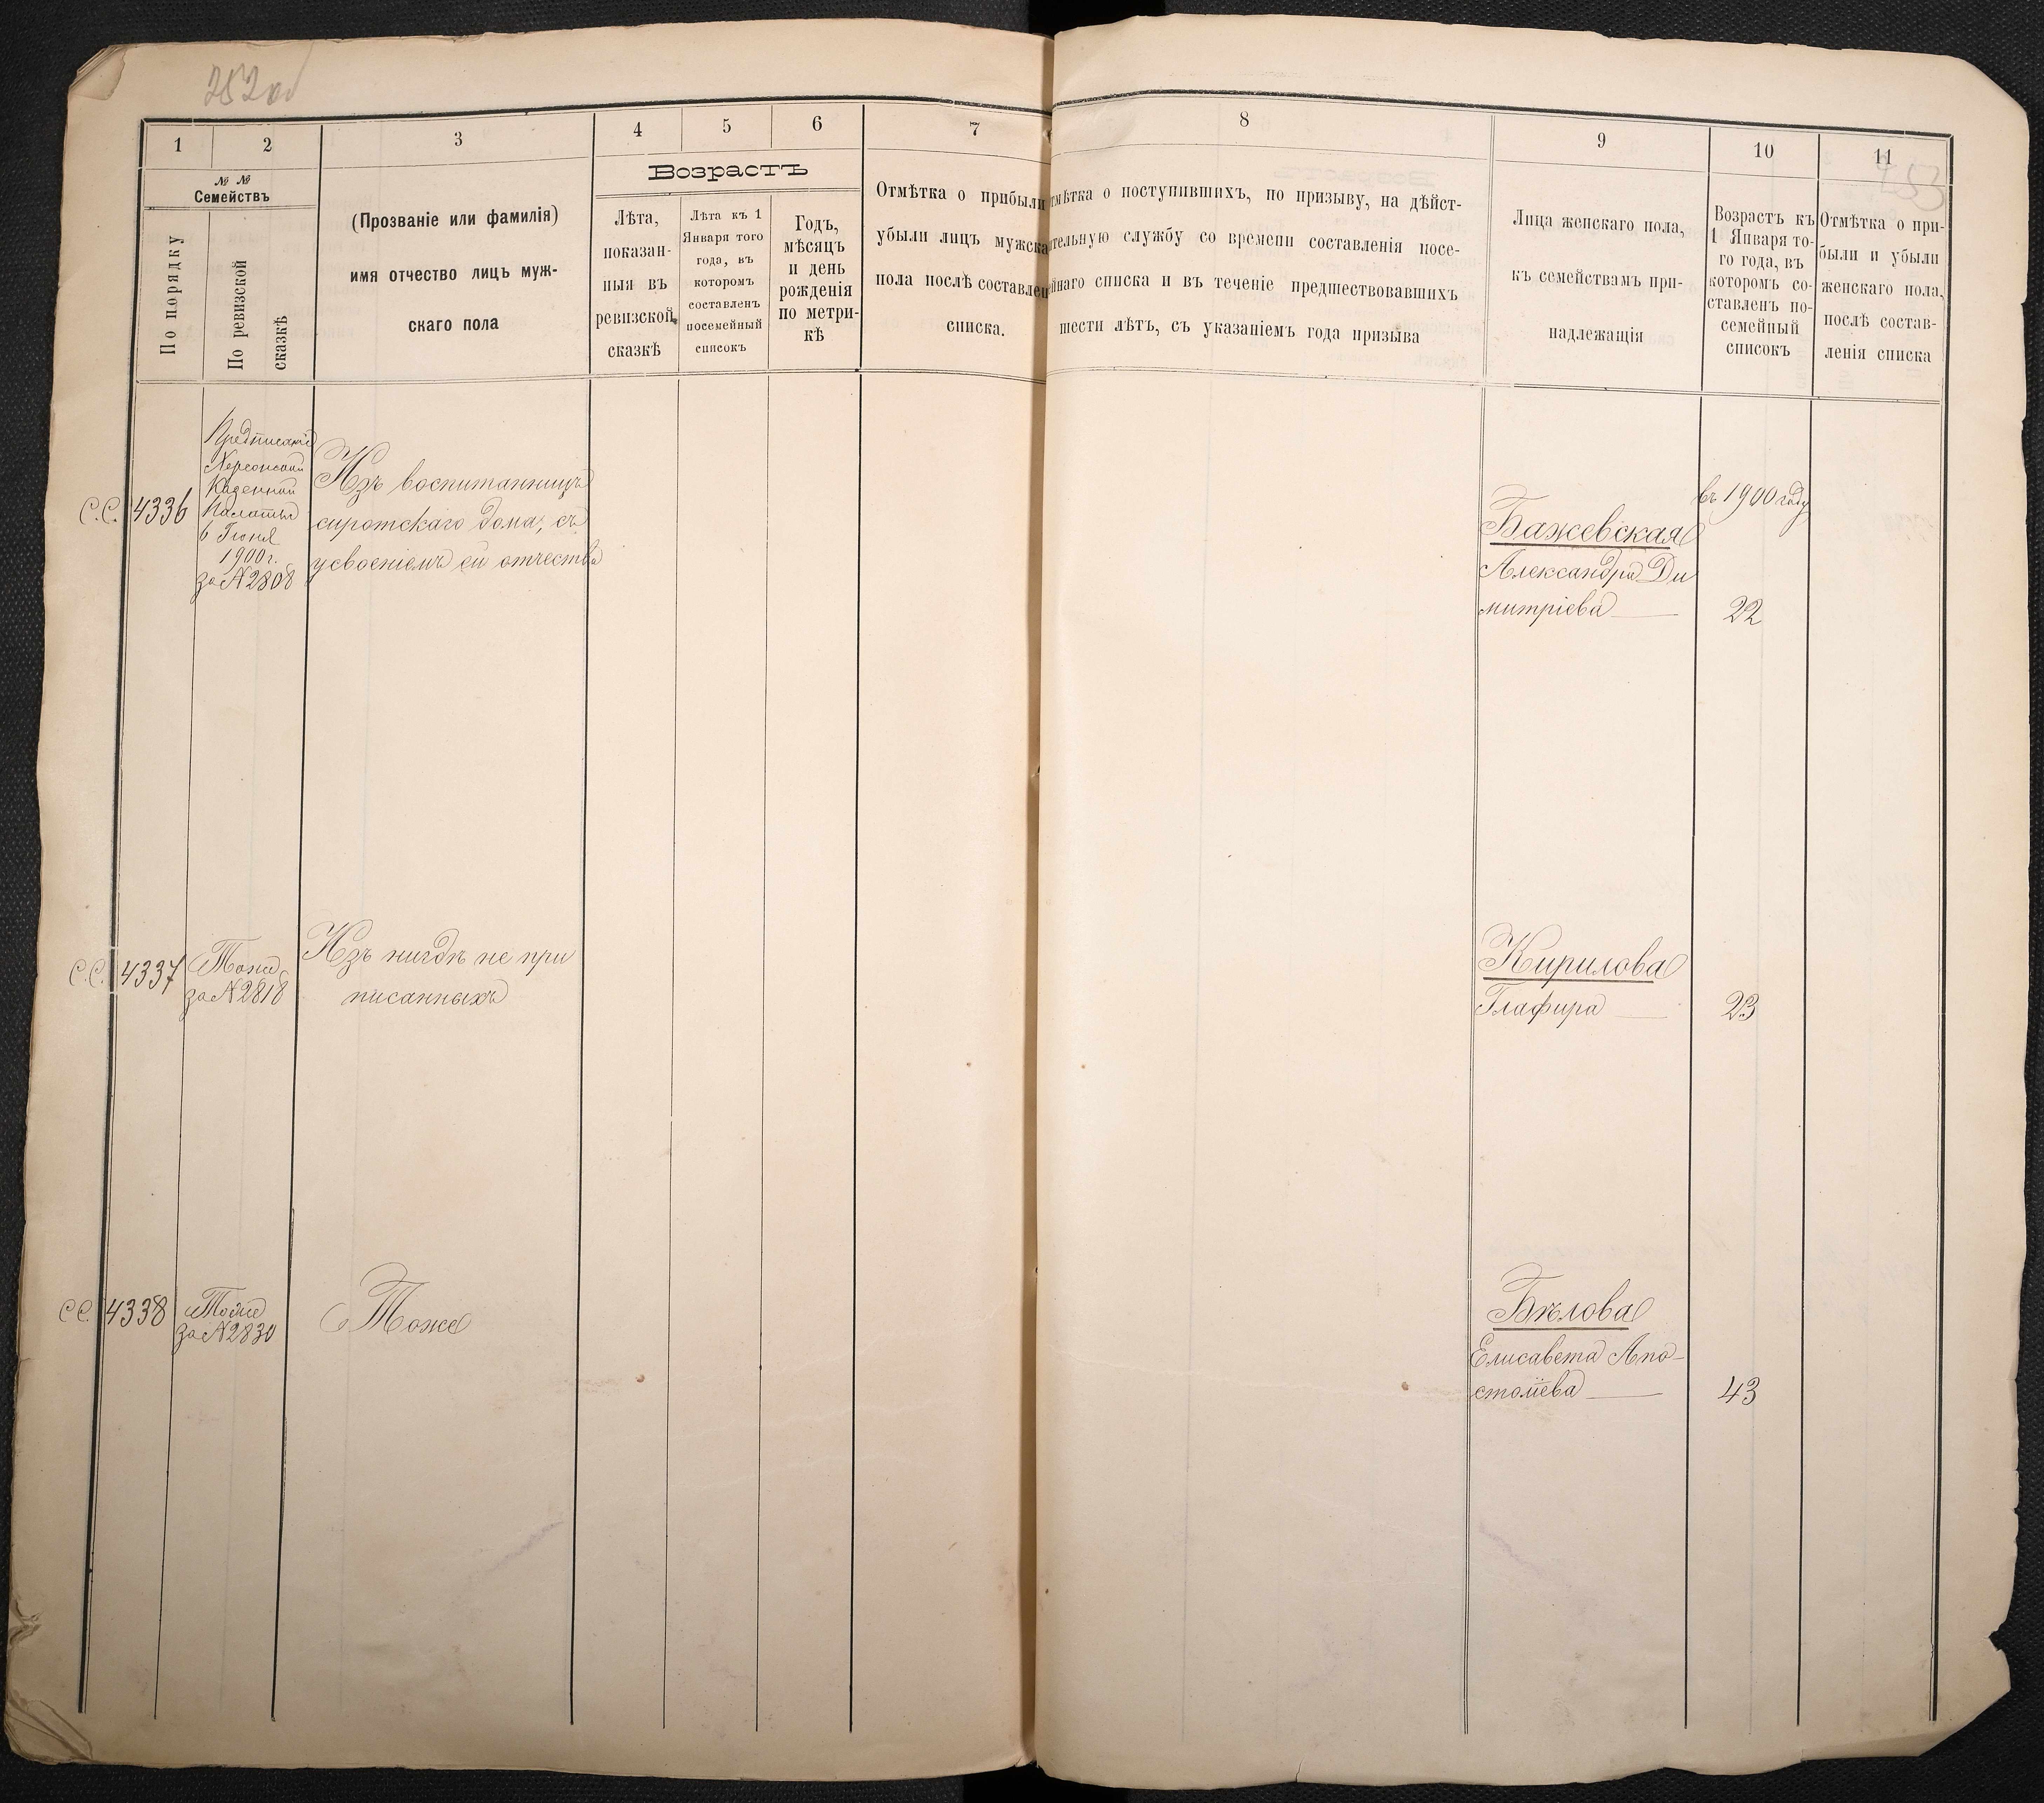 252 об
253
1
2
3
4
5
6
7
8
9
10
11
№ №
Семействъ
По порядку
По ревизской
сказкѣ
(Прозваніе или фамилія)
имя отчество лицъ муж-
скаго пола
Возрастъ
Лѣта,
показан-
ныя въ
ревизской
сказкѣ
Лѣта къ 1
Января того
года, въ
которомъ
составленъ
посемейный
списокъ
Годъ,
мѣсяцъ
и день
рожденія
по метри-
кѣ
Отмѣтка о прибыли
убыли лицъ мужска
пола послѣ составлен
списка.
тмѣтка о поступившихъ, по призыву, на дѣйст-
ительную службу со времени составленія посе-
ейнаго списка и въ теченіе предшествовавшихъ
шести лѣтъ, съ указаніемъ года призыва
Лица женскаго пола,
къ семействамъ при-
надлежащія
Возрастъ къ
1 Января то-
го года, въ
которомъ со-
ставленъ по-
семейный
списокъ
Отмѣтка о при-
были и убыли
женскаго пола,
послѣ состав-
ленія списка
С.С. 4336
Предписаніе
Херсонской
Казенной
Палаты
6 Іюня
1900 г.
за № 2808
Изъ воспитанницъ
сиротскаго дома, съ
усвоеніемъ ей отчества
Бажевская
Александра Ди
митріева
въ 1900 году
22
С.С. 4337
Тоже
за № 2818
Изъ нигдѣ не при
писанныхъ
Кирилова
Глафира
23
С.С. 4338
Тоже
за № 2830
Тоже
Бѣлова
Елисавета Апо-
століева
43